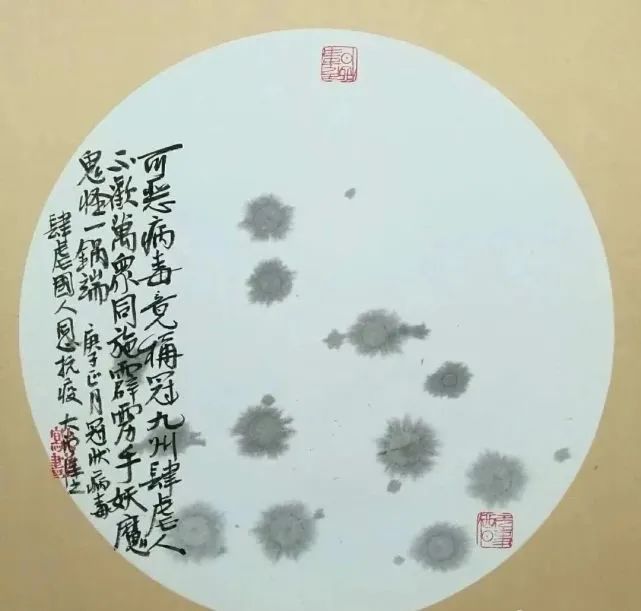 可恶病毒竟称冠九州肆虐人
不歡萬眾同施霹雳手妖魔
鬼怪一鍋端 庚子正月冠狀病毒
肆虐國人同心抗疫